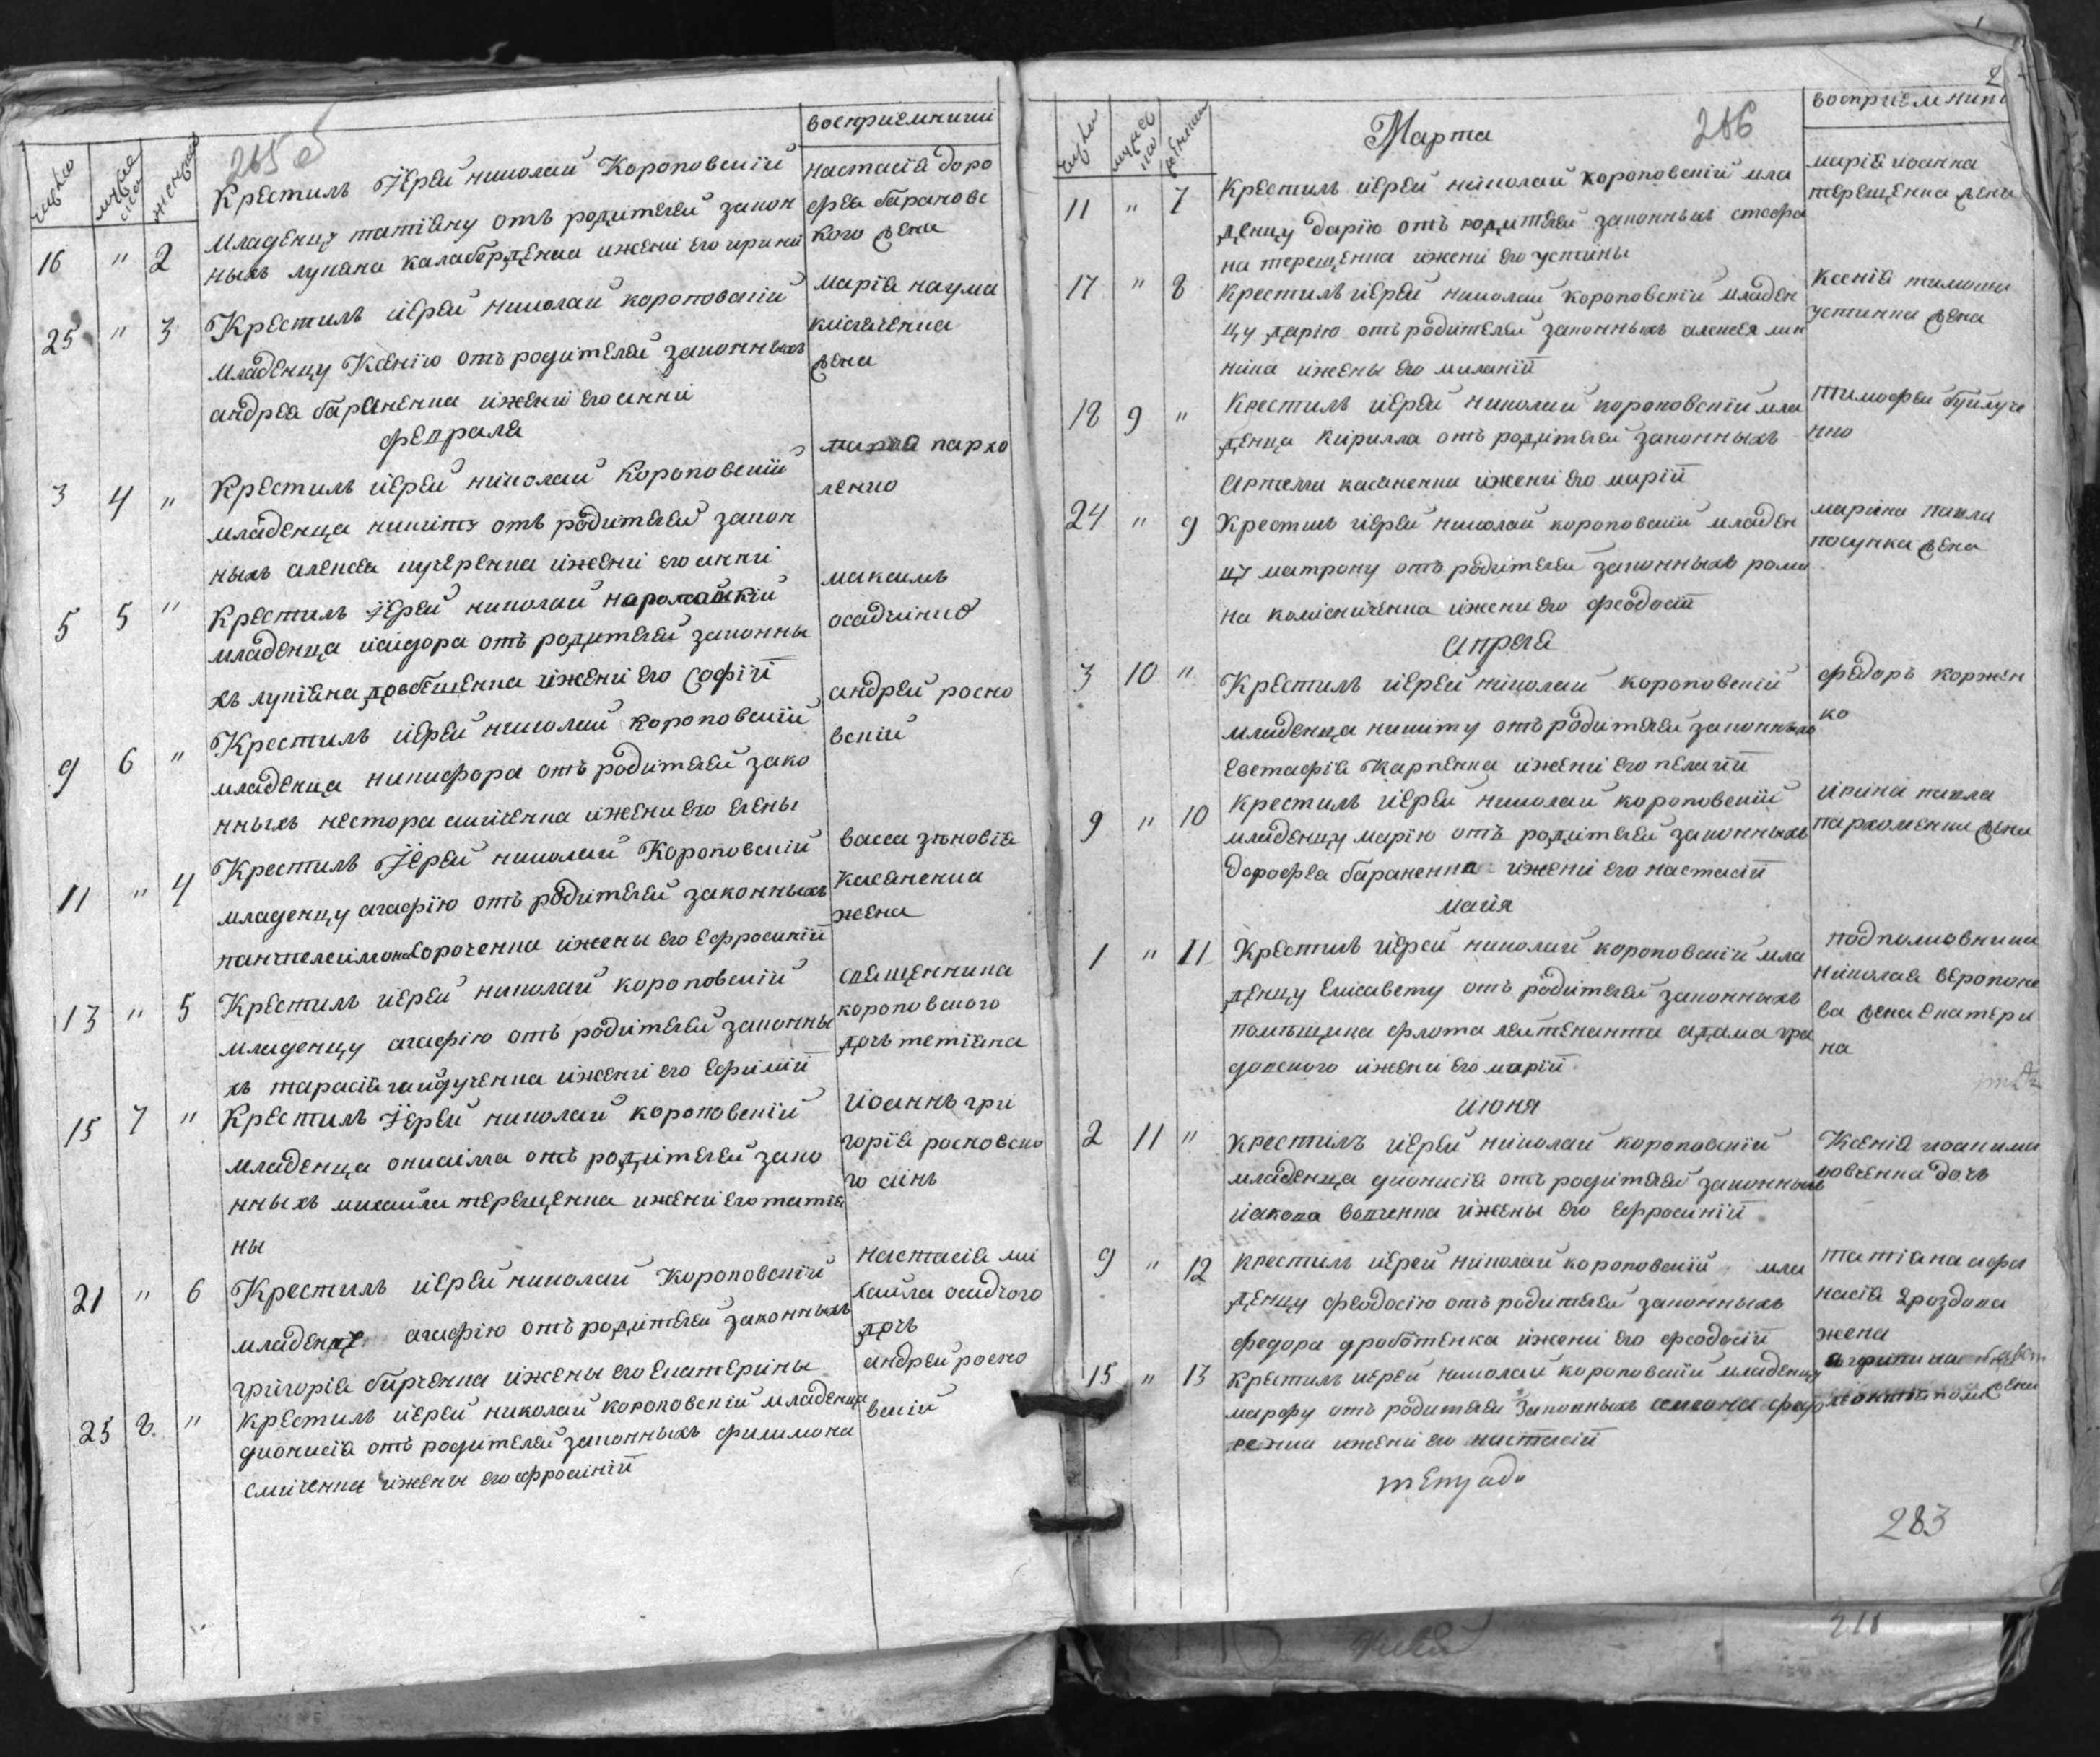 265 об
восприемники
число
мужеска
женска
Крестилъ Іерей николай Короповскій
младенцу татіяну отъ родителей закон
ныхъ лукяна калаберденка ижені его ирини
16 " 2
настасія доро
фея барановс
кого жена
Крестилъ іерей николай короповскій
младенцу Ксенію отъ родителей законныхъ
андрея бараненка ижені его анни
25 " 3
марія наума
жена
февраля
Крестилъ іерей николай короповскій
младенца никиту отъ родителей закон
ныхъ алексея кучеренка ижені его анни
3 4 "
пархо
менко
Крестилъ Іерей николай
младенца ісидора отъ родителей законны
хъ лукіяна довбешенка ижені его софіи
5 5 "
максимъ
осадчинко
Крестилъ іерей николай короповскій
младенца никифора отъ родителей зако
нныхъ нестора ижени его елены
9 6 "
андрей росно
вскій
Крестилъ Іерей николай Короповскій
младенцу агафію отъ родителей законныхъ
пантелеимона Сороченка ижены его Ефросиніи
11 " 4
васса зѣновія
касяненка
жена
Крестилъ іерей николай короповскій
младенцу агафію отъ родителей законны
хъ тарасія гайдученка ижені его Ефиміи
13 " 5
священника
короповского
дочь тетіяна
Крестилъ Іерей николай короповскій
младенца отъ родителей зако
нныхъ михайла терещенка ижені его татія
ны
15 7 "
Іоаннъ гри
горія росновско
го синъ
Крестилъ іерей николай Короповскій
агафію отъ родителей законныхъ
григорія бирченка ижены его Екатерины
21 " 6
настасія ми
хайла осадчого
дочь
Крестилъ іерей николай короповскій младенца
дионисія отъ родителей законныхъ филимона
ижены его ефросиніи
25 8 "
андрей росно
вскій
2
266
восприемники
число
Марта
Крестилъ іерей николай короповскій мла
денцу дарію отъ родителей законныхъ стефа
на терещенка ижені его устины
11 " 7
марія иоанна
терещенка жена
Крестилъ іерей николай короповскій младен
цу дарію отъ родителей законныхъ алексея лин
ника ижены его миланіи
17 " 8
Ксенія тимоша
устинка жена
Крестилъ іерей николай короповскій мла
денца Кирилла отъ родителей законныхъ
Артема касяненка ижені его маріи
18 9 "
тимофей
нко
Крестилъ іерей николай короповскій младен
цу матрону отъ родителей законныхъ рома
на колісниченка ижени его феодосіи
24 " 9
марина павла
жена
апреля
Крестилъ іерей николай короповскій
младенца никиту отъ родителей законныхъ
Евстафія Карпенка ижені его пелагіи
3 10 "
федоръ коржен
ко
Крестилъ іерей николай короповскій
младенцу марію отъ родителей законныхъ
дорофея бараненка ижені его настасіи
9 " 10
ирина павла
пархоменка жена
маія
Крестилъ іерей николай короповскій мла
денцу Елисавету отъ родителей законныхъ
помѣщика флота лейтенанта адама гра
довского ижені его маріи
1 " 11
подполковника
николая веропоне
ва жена екатери
на
июня
Крестилъ іерей николай короповскій
младенца дионисія отъ родителей законныхъ
іакова вовченка ижены его ефросиніи
2 11 "
Ксенія иоакима
вовченка дочь
Крестилъ іерей николай короповскій мла
денцу феодосію отъ родителей законныхъ
федора дроботенка ижені его феодосіи
9 " 12
татіана афа
насія дроздова
жена
Крестилъ іерей николай короповскій младенцу
марфу отъ родителей законныхъ
ижені его настасіи
15 " 13
жена
283